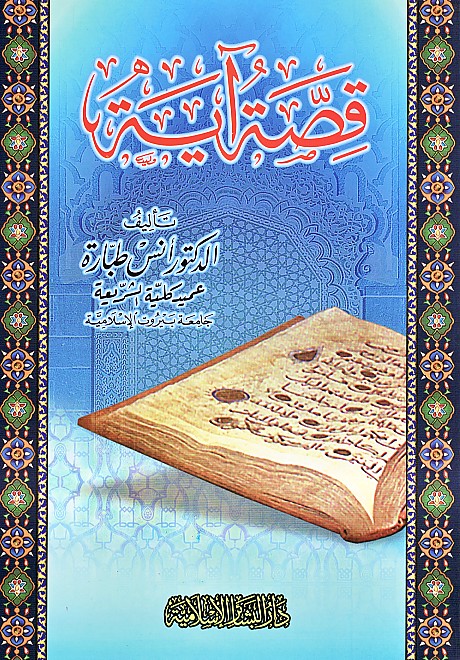 قِصَّةُ آيَةٍ
تأليف
الدكتور أنس طبّارة
عميد كليّة الشريعة
جامعة بيروت الإسلامية
دار البشائر الإسلامية